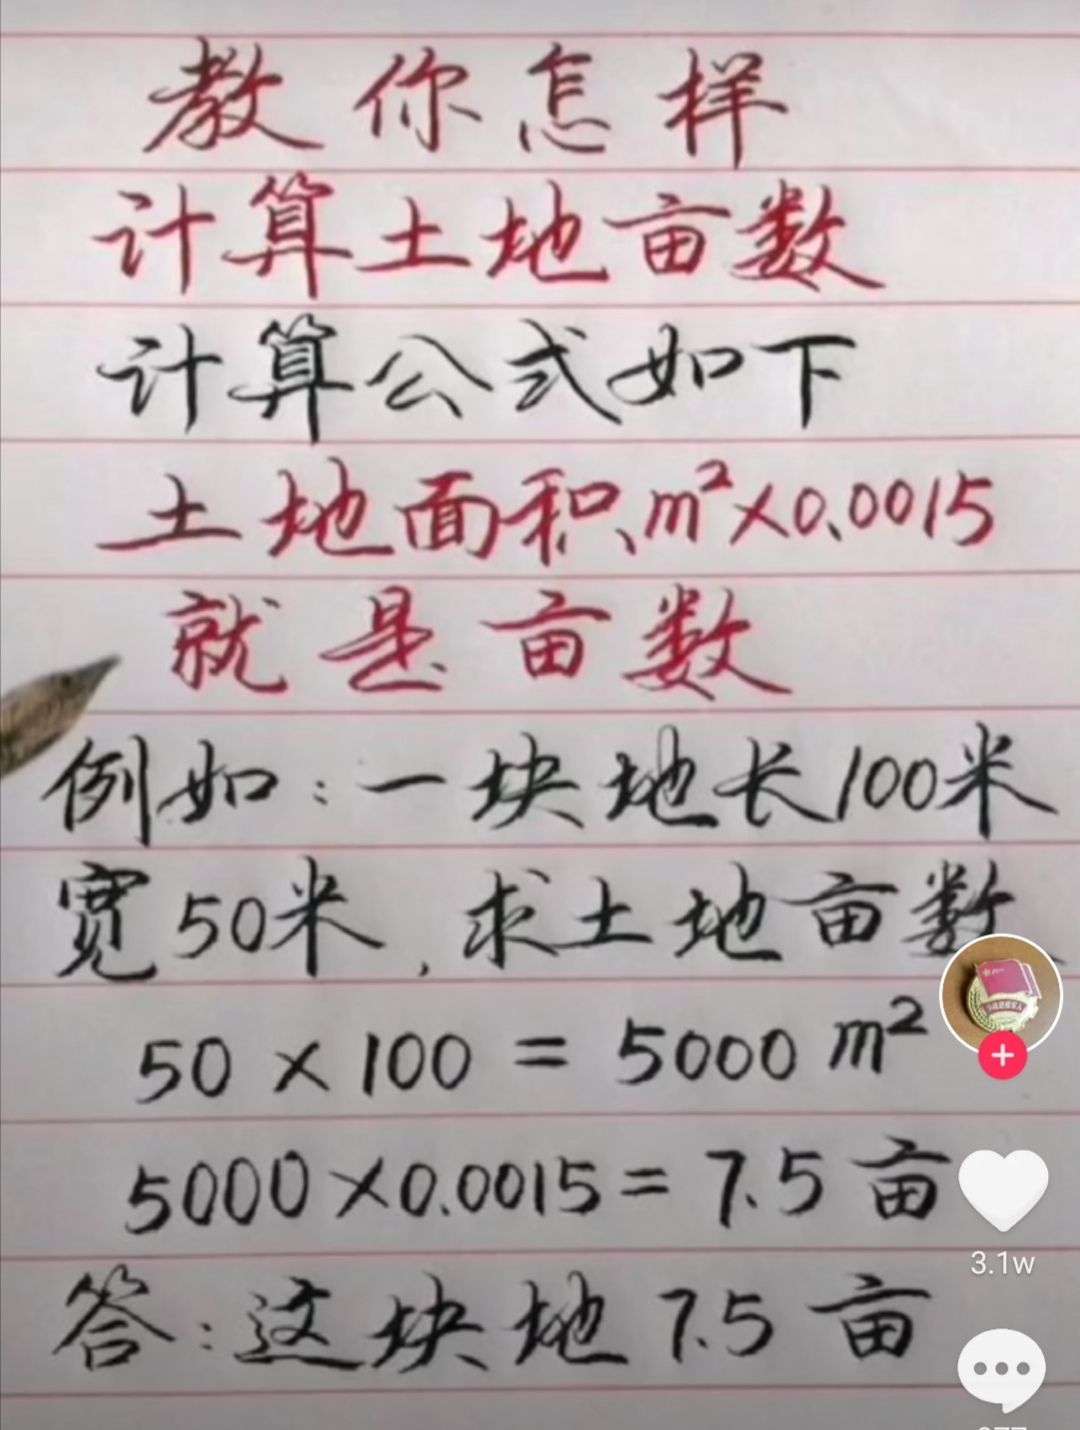 教你怎样
计算土地亩数
计算公式如下
土地面积m²×0.0015
就是亩数
例如：一块地长100米
宽50米，求土地亩数
50×100=5000m²
5000×0.0015=7.5亩
答：这块地7.5亩
3.1w